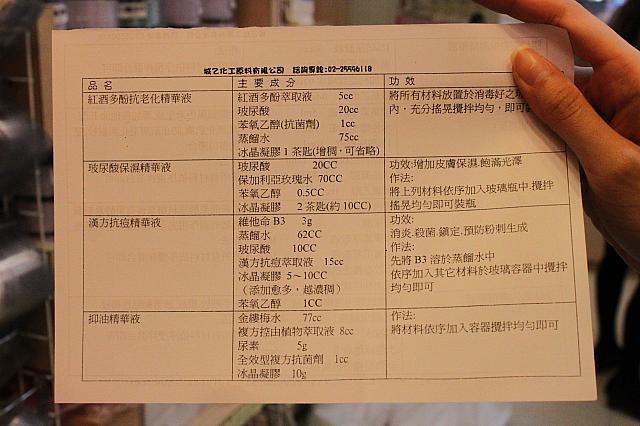 城乙化工原料有限公司 諮詢專線:02-25596118
品名 主要成分 功效
紅酒多酚抗老化精華液
紅酒多酚萃取液 5cc
玻尿酸 20cc
苯氧乙醇(抗菌劑) 1cc
蒸餾水 75cc
冰晶凝膠 1 茶匙(增稠,可省略)
將所有材料放置於消毒好之
內,充分搖晃攪拌均勻,即可
玻尿酸保濕精華液
玻尿酸 20CC
保加利亞玫瑰水 70CC
苯氧乙醇 0.5CC
冰晶凝膠 2 茶匙(約 10CC)
功效:增加皮膚保濕.飽滿光澤
作法:
將上列材料依序加入玻璃瓶中.攪拌
搖晃均勻即可裝瓶
漢方抗痘精華液
維他命 B3 3g
蒸餾水 62CC
玻尿酸 10CC
漢方抗痘萃取液 15cc
冰晶凝膠 5~10CC
(添加愈多,越濃稠)
苯氧乙醇 1CC
功效:
消炎.殺菌.鎮定.預防粉刺生成
作法:
先將 B3 溶於蒸餾水中
依序加入其它材料於玻璃容器中攪拌
均勻即可
抑油精華液
金縷梅水 77cc
複方控由植物萃取液 8cc
尿素 5g
全效型複方抗菌劑 1cc
冰晶凝膠 10g
作法:
將材料依序加入容器攪拌均勻即可